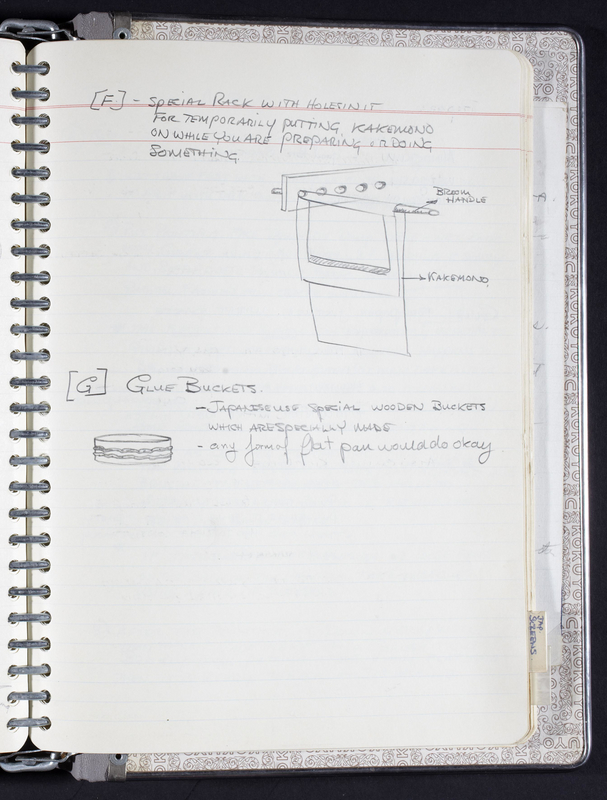 [F] - SPECIAL RACK WITH HOLES IN IT
FOR TEMPORARILY PUTTING KAKEMONO
ON WHILE YOU ARE PREPARING OR DOING
SOMETHING.
BROOM
HANDLE
KAKEMONO
[G] GLUE BUCKETS.
- JAPANESE USE SPECIAL WOODEN BUCKETS
WHICH ARE SPECIALLY MADE
- any form of flat pan would do okay
JAP
SCREENS
KOKUYO